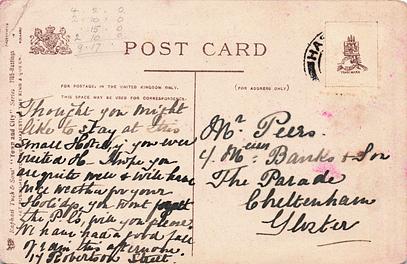 4. 5. 0.
2. 10. 0
15. 0
2. 10. 0.
9.17
POST CARD
FOR POSTAGE, IN THE UNITED KINGDOM ONLY,
THIS SPACE MAY BE USED FOR CORRESPONDENCE.
(FOR ADDRESS ONLY)
HAS
TRADE MARK
Raphael Tuck & Sons' "Town and City" Series 785-Hastings
Thought you might
like to stay at this
small Hotel, if you ever
visited H- Hope you
are quite well & will have
nice weather for your
Holiday, you wont forget
the P.C. will you please.
We have had a good fall
of rain this afternoon.
17 Robertson Street.
Mr Peers.
c/ Messrs Banks & Son
The Parade
Cheltenham
Gloster